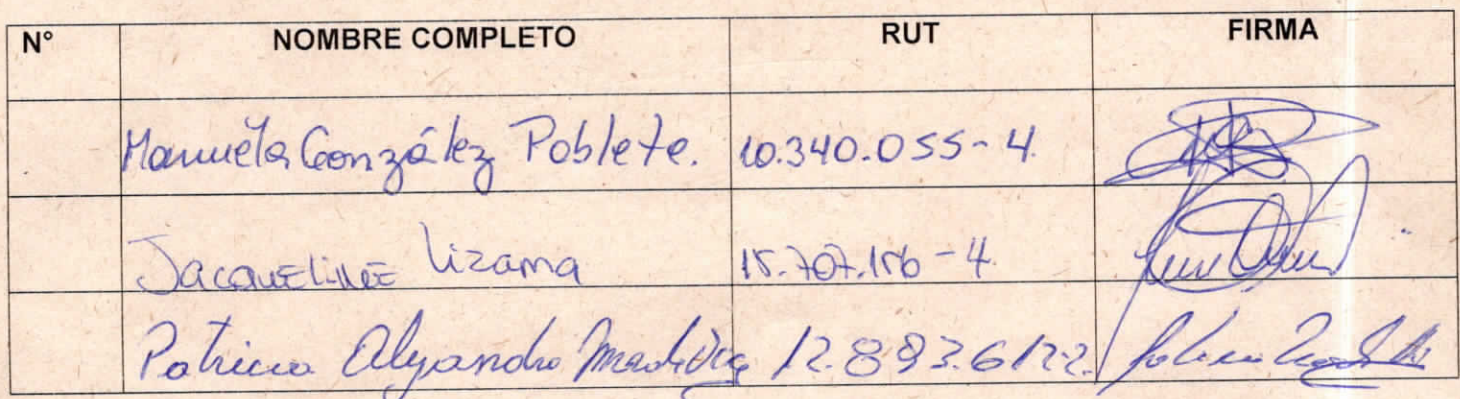 N° NOMBRE COMPLETO RUT FIRMA
Manuela González Poblete. 10.340.055-4.
Jacqueline Lizama 15.707.156-4
Patricia Alejandra